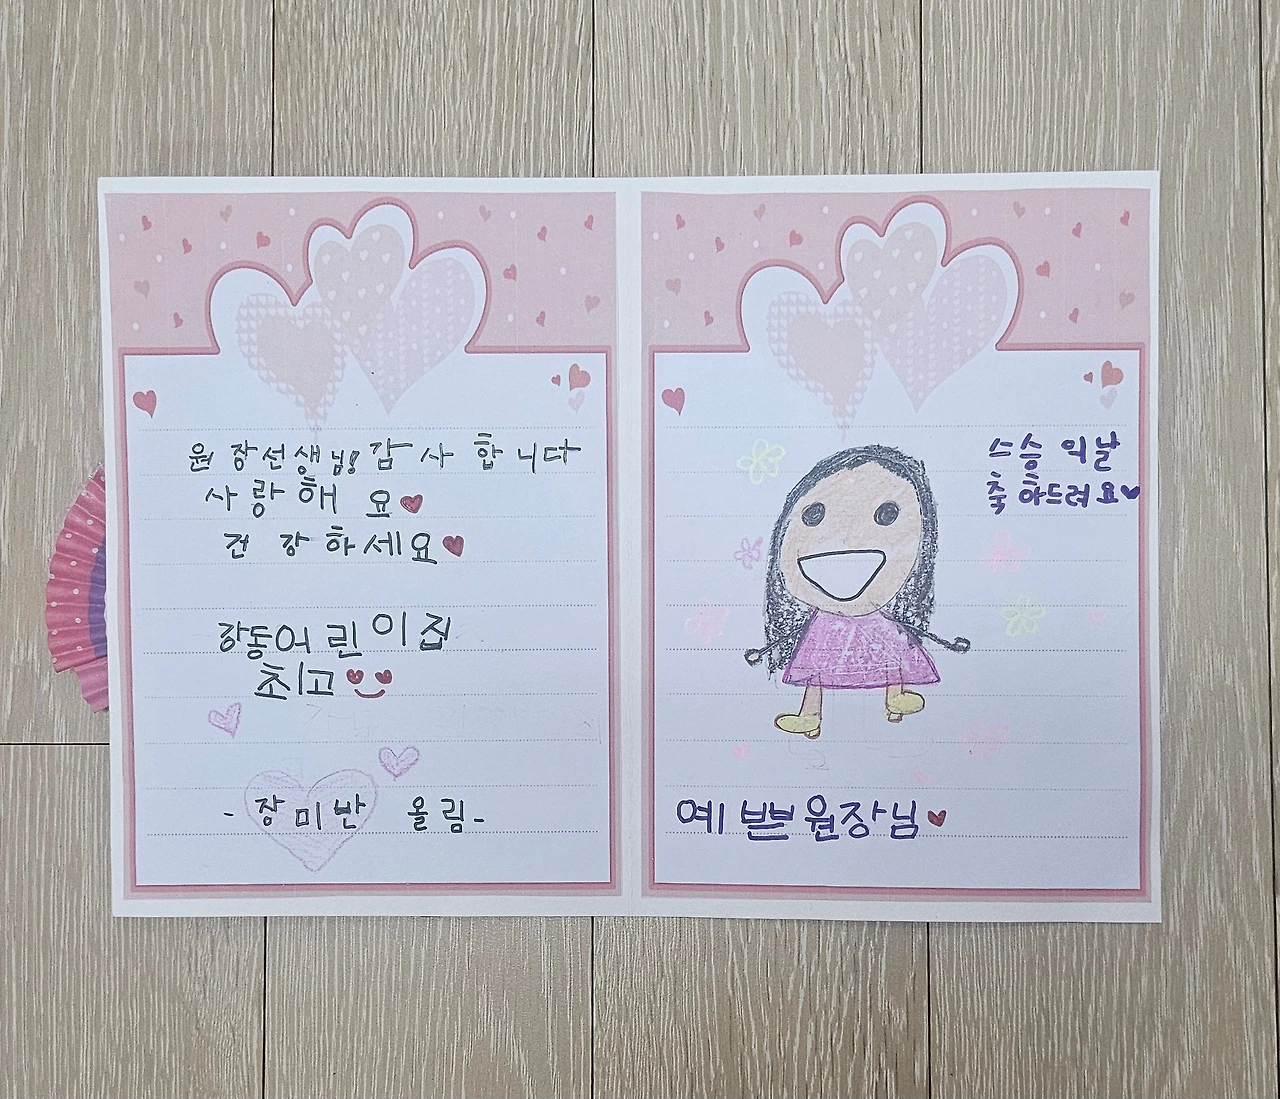 원장선생님! 감사합니다
사랑해요♥
건강하세요♥
강동어린이집
최고
-장미반 올림-
스승의날
축하드려요♥
예쁜원장님♥